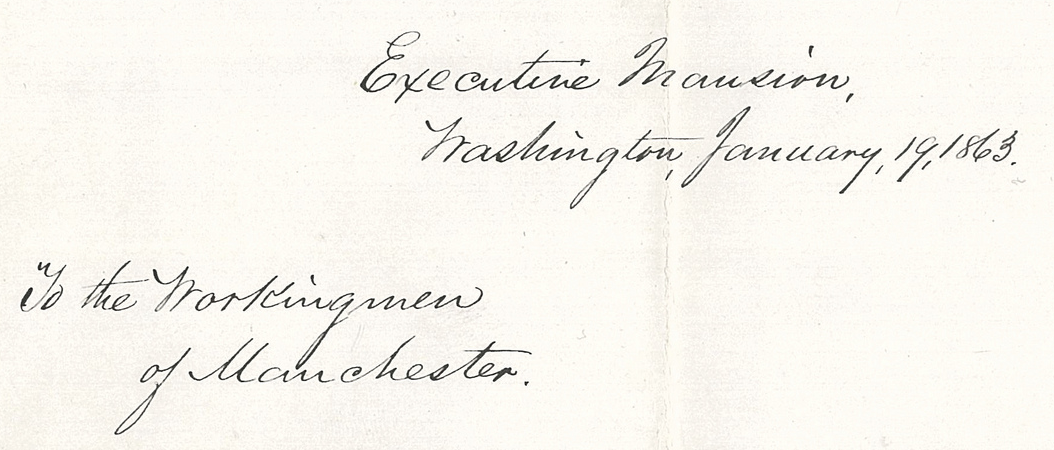 Executive Mansion,
Washington, January, 19, 1863.
To the Workingmen
of Manchester.